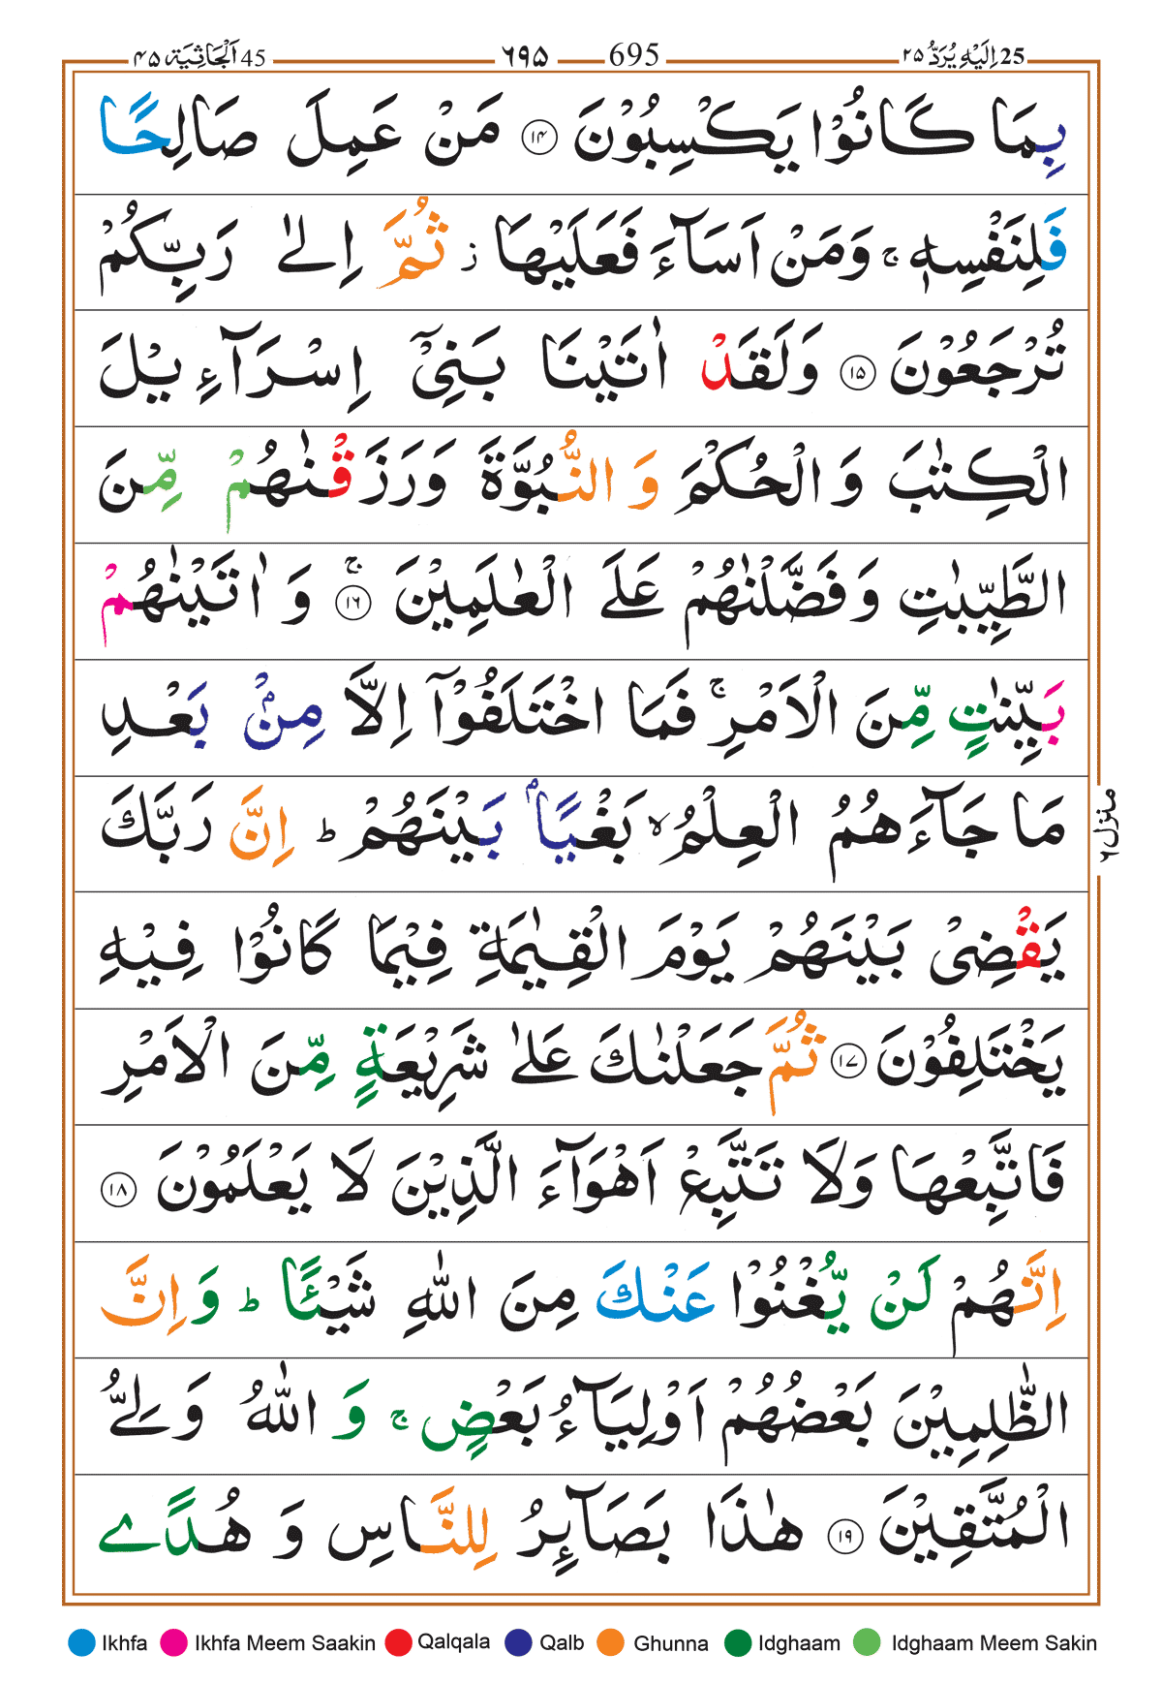 45 اَلْجَاثِيَة ۴۵ 695 ۶۹۵ 25 اِلَيْهِ يُرَدُّ ۲۵
بِمَا كَانُوْا يَكْسِبُوْنَ ۱۴ مَنْ عَمِلَ صَالِحًا
فَلِنَفْسِهٖ ۚ وَمَنْ اَسَآءَ فَعَلَيْهَا ز ثُمَّ اِلٰى رَبِّكُمْ
تُرْجَعُوْنَ ۱۵ وَلَقَدْ اٰتَيْنَا بَنِيْٓ اِسْرَآءِيْلَ
الْكِتٰبَ وَ الْحُكْمَ وَ النُّبُوَّةَ وَرَزَقْنٰهُمْ مِّنَ
الطَّيِّبٰتِ وَفَضَّلْنٰهُمْ عَلَى الْعٰلَمِيْنَ ۱۶ ۚ وَ اٰتَيْنٰهُمْ
بَيِّنٰتٍ مِّنَ الْاَمْرِ ۚ فَمَا اخْتَلَفُوْٓا اِلَّا مِنْۢ بَعْدِ
مَا جَآءَهُمُ الْعِلْمُ ۙ بَغْيًاۢ بَيْنَهُمْ ؕ اِنَّ رَبَّكَ
يَقْضِىْ بَيْنَهُمْ يَوْمَ الْقِيٰمَةِ فِيْمَا كَانُوْا فِيْهِ
يَخْتَلِفُوْنَ ۱۷ ثُمَّ جَعَلْنٰكَ عَلٰى شَرِيْعَةٍ مِّنَ الْاَمْرِ
فَاتَّبِعْهَا وَلَا تَتَّبِعْ اَهْوَآءَ الَّذِيْنَ لَا يَعْلَمُوْنَ ۱۸
اِنَّهُمْ لَنْ يُّغْنُوْا عَنْكَ مِنَ اللّٰهِ شَيْـًٔا ؕ وَاِنَّ
الظّٰلِمِيْنَ بَعْضُهُمْ اَوْلِيَآءُ بَعْضٍ ۚ وَ اللّٰهُ وَلِىُّ
الْمُتَّقِيْنَ ۱۹ هٰذَا بَصَآئِرُ لِلنَّاسِ وَ هُدًى
منزل ۶
Ikhfa Ikhfa Meem Saakin Qalqala Qalb Ghunna Idghaam Idghaam Meem Sakin